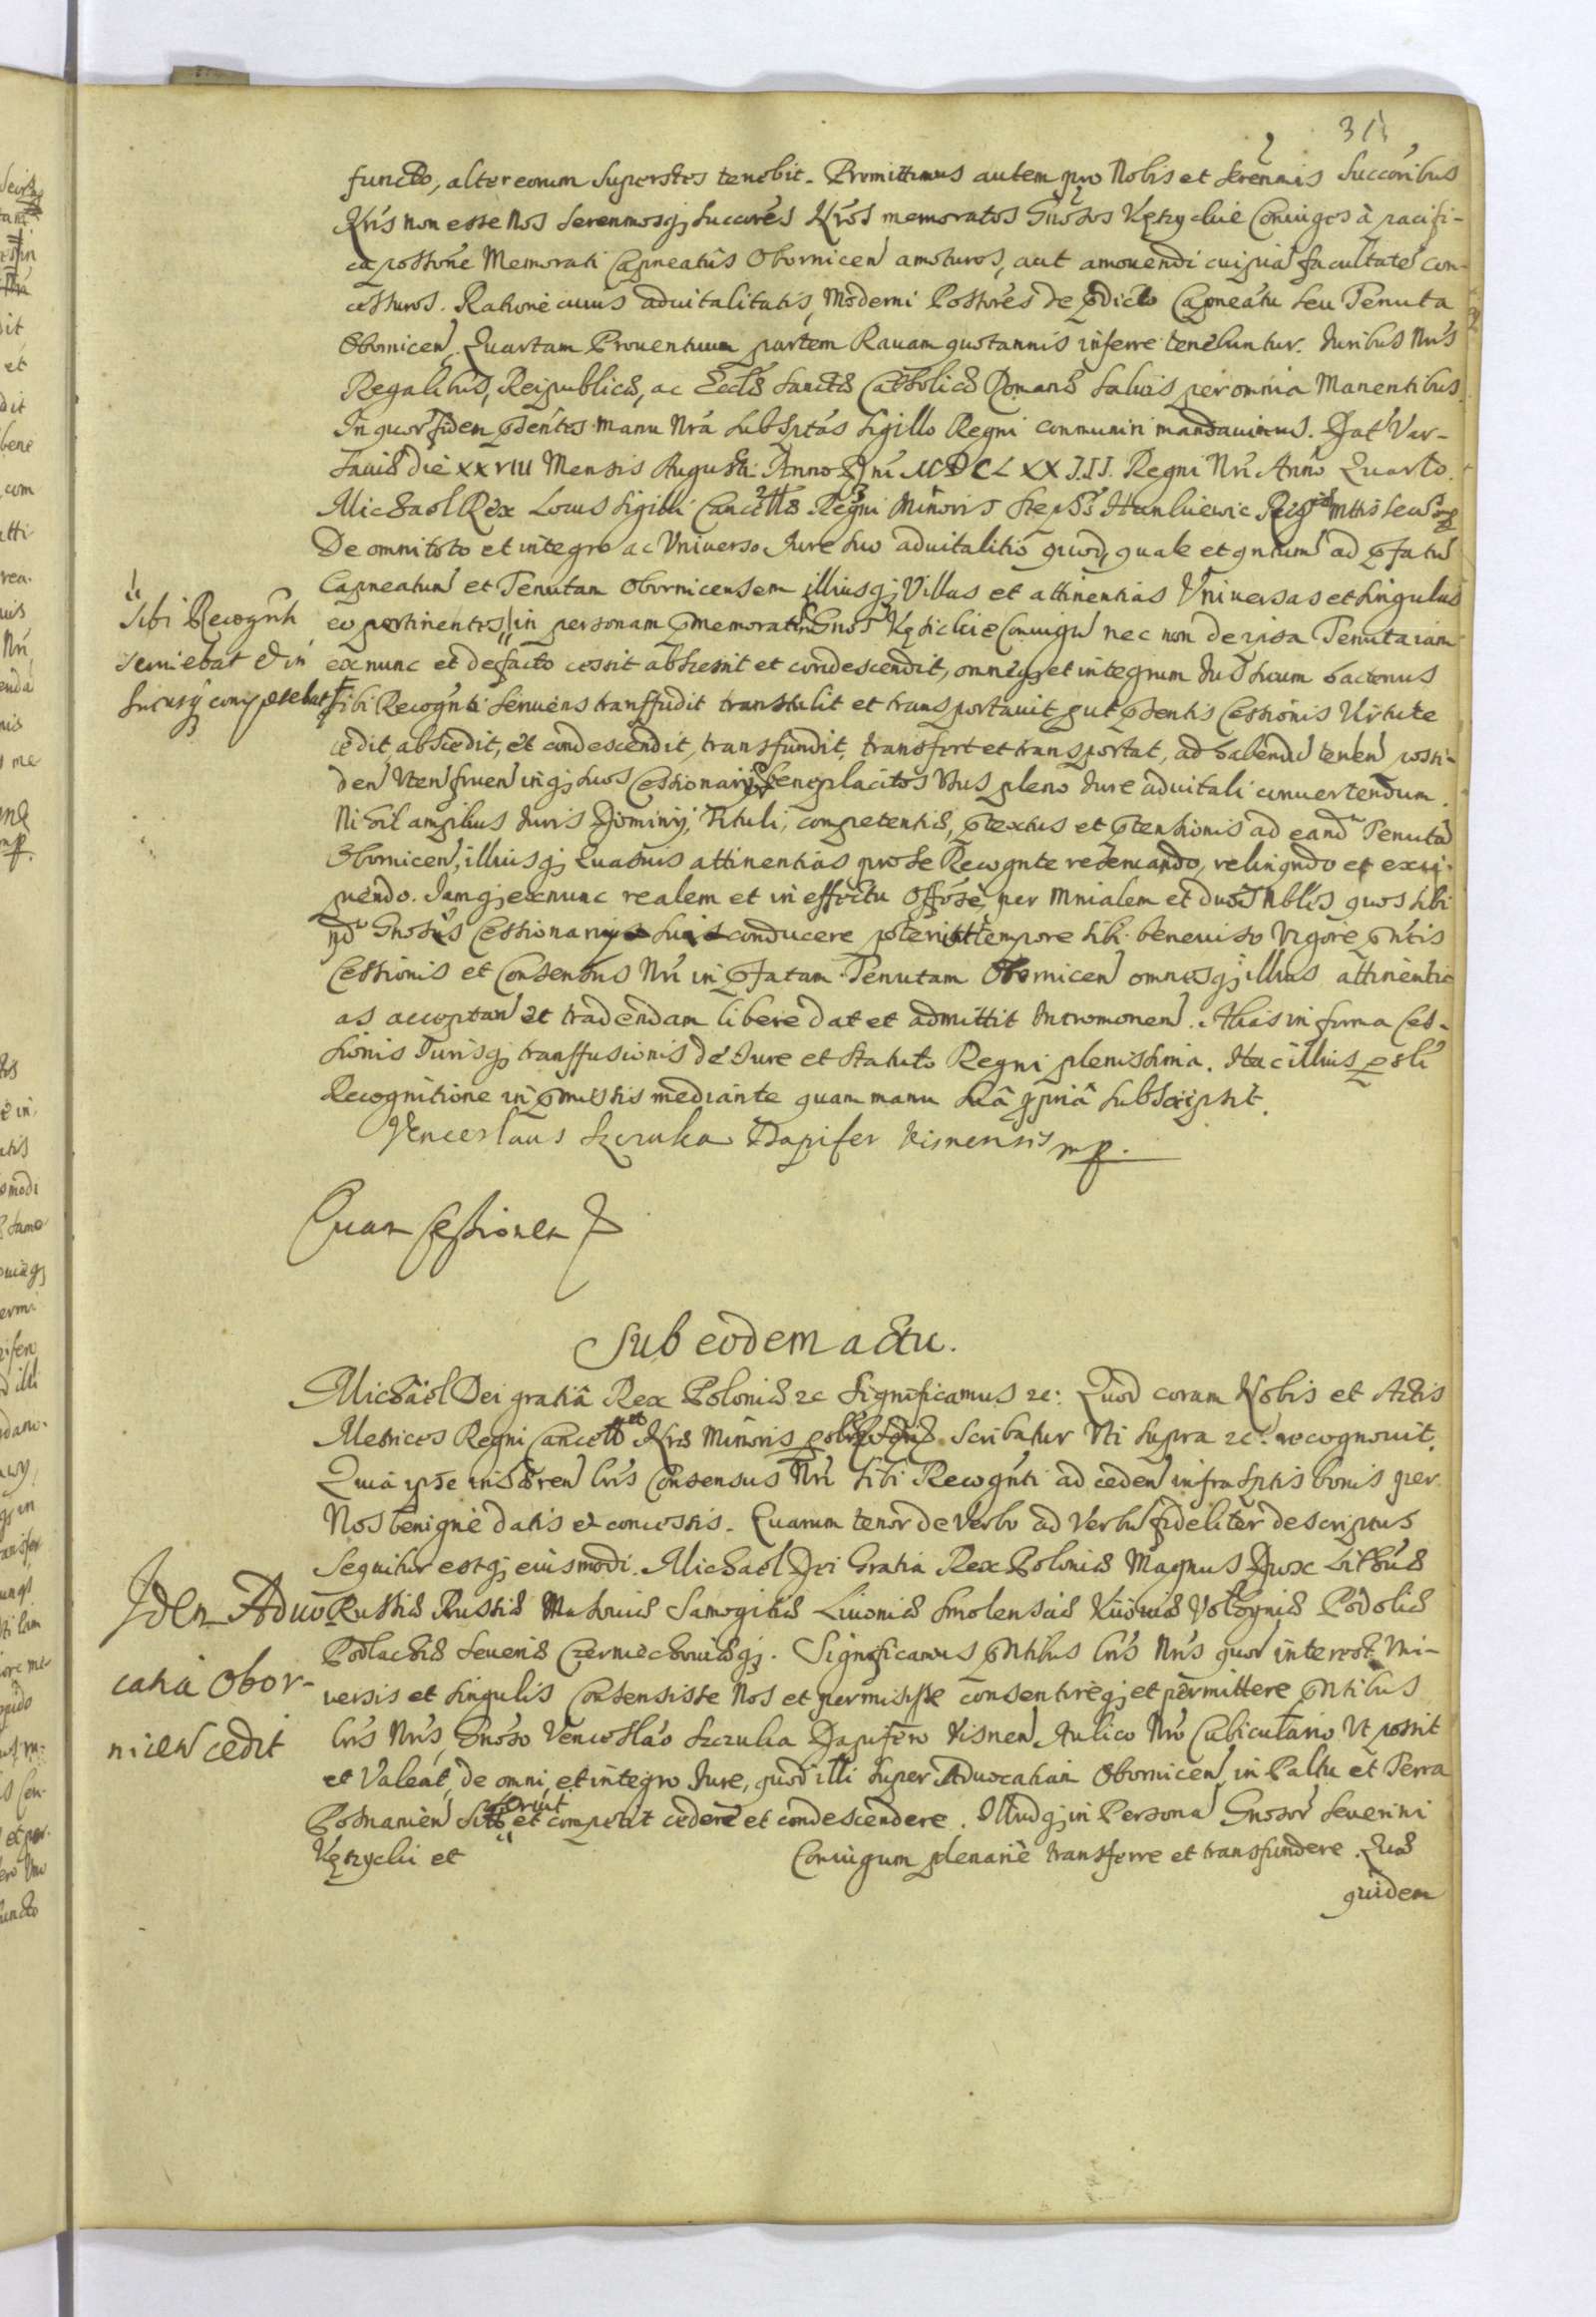 311
functo, alter eorum Superstes tenebit. Promittimus autem pro Nobis et Serenmis Succoribus
Nris non esse Nos Serenmosq; Succores Nros memoratos Gnosos Kęzyckie Coniuges à pacifi-
ca possone Memorati Capneatus Obornicen amoturos, aut amouendi cuipia facultate con-
cessuros. Ratione cuius aduitalitatis, Moderni Possores de pdicto Capneatu seu Tenuta
Obornicen Quartam Prouentuum partem Rauam quotannis inferre tenebuntur. Iuribus Nris
Regalibus, Reipublicæ, ac Eccle Sanctæ Catholicæ Romanæ Saluis per omnia Manentibus.
In quor fidem pdentes manu Nra Subsptas Sigillo Regni communiri mandauimus. Dat Var-
sauiæ die XXVIII Mensis Augusti Anno Dni MDCLXXIII. Regni Nri Anno Quarto.
Michael Rex Locus Sigilli Cancellæ Regni Minoris Stephs Hankiewic Regiæ Mttis Secr
De omni toto et integro ac Vniuerso Iure suo aduitalitio quod, quale et qntum ad pfatu
Capneatum et Tenutam Obornicensem illiusq; Villas et attinentias Vniuersas et singulas
Sibi Recognti
eo pertinentes in personam pmemorator Gnos Kęsickie Coniugu nec non de ipsa Tenuta iam
seruiebat & in
ex nunc et de facto cessit abscessit et condescendit, omneq; et integrum Ius suum hactenus
suiusq competebat
sibi Recognti seruiens transfudit transtulit et transportauit put psentis Cessionis Virtute
cedit, abscedit, et condescendit, transfundit, transfert et transportat, ad habendu tenen possi-
den Vten fruen inq; suos Cessionarior beneplacitos Vsus pleno Iure aduitali conuertendum.
Nihil amplius Iuris Dominij, Tituli, competentiæ, ptextus et ptensionis ad eand Tenuta
Obornicen, illiusq; Quasuis attinentias pro se Recognte reseruando, relinqndo et exci-
piendo. Iamq; exnunc realem et in effectu per Mnialem et duos Nbles quos sibi
Gnosus Cessionarius suis conducere poterit tempore sibi beneuiso Vigore pntis
Cessionis et Consensus Nri in pfatam Tenutam Obornicen omnesq; illius attinenti-
as acceptan et tradendam libere dat et admittit Intromonen. Alias in forma Ces-
sionis Iurisq; transfusionis de Iure et Statuto Regni plenissima. Hac illius psli
Recognitione in pmissis mediante quam manu sua ppria subscripsit.
Venceslaus Szczuka Dapifer Visnensis mp.
Quam Cessionem
Sub eodem actu.
Michael Dei gratiâ Rex Poloniæ &c Significamus &c: Quod coram Nobis et Actis
Metrices Regni Cancell Nræ Minoris Scribatur Vti supra &c. recognouit.
Quia ipse lris Consensus Nri sibi Recognti ad ceden infrasptis bonis per
Nos benigne datis et concessis. Quarum tenor de verbo ad Verbu fideliter descriptus
Sequitur estq; eiusmodi. Michael Dei Gratia Rex Poloniæ Magnus Dux Lithuæ
Idem Aduo-
Russiæ Prussiæ Masouiæ Samogitiæ Liuoniæ Smolensciæ Kiiouiæ Volhyniæ Podoliæ
Podlachiæ Seueriæ Czerniechouiæq;. Significamus pntibus lris Nris quor interest Vni-
catia Obor-
uersis et singulis Consensisse Nos et permisisse consentireq; et permittere pntibus
nicen cedit
lris Nris, Gnoso Venceslao Szczuka Dapifero Visnen Aulico Nro Cubiculario Vt possit
et Valeat, de omni et integro Iure, quod illi super Aduocatiam Obornicen in Paltu et Terra
Posnanien Sitt et competit cedere et condescendere. Illudq; in Persona Gnosor Seuerini
Kęzycki et Coniugum plenariè transferre et transfundere. Quas
quidem